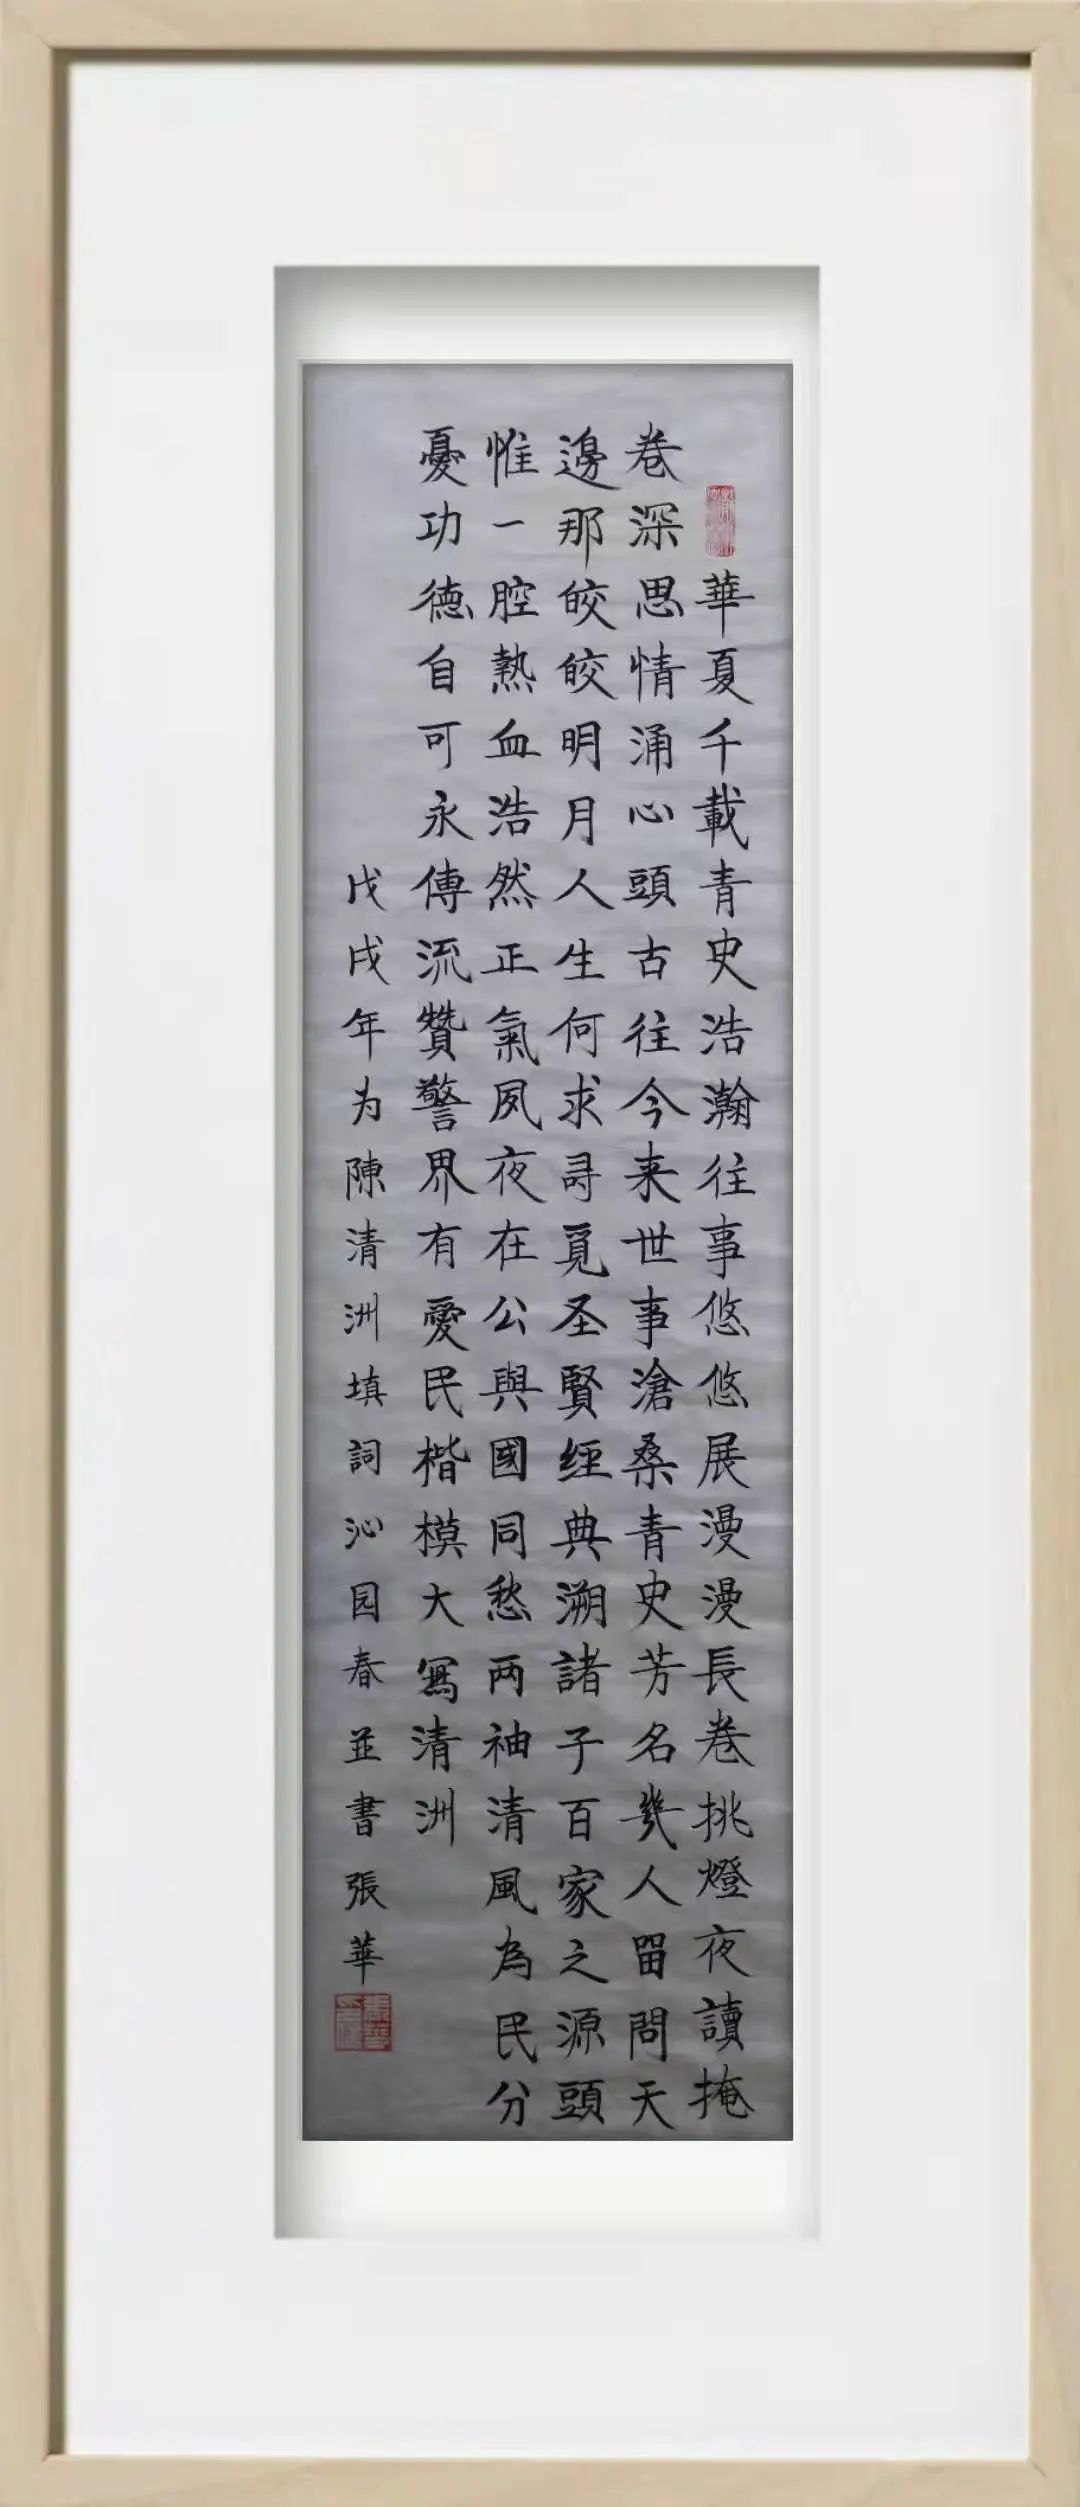 華夏千載青史浩瀚往事悠悠展漫漫長卷挑燈夜讀掩
卷深思情涌心頭古往今来世事滄桑青史芳名幾人留問天
邊那皎皎明月人生何求尋覓圣賢經典溯諸子百家之源頭
惟一腔熱血浩然正氣夙夜在公與國同愁两袖清風為民分
憂功德自可永傳流贊警界有愛民楷模大寫清洲
戊戌年为陳清洲填詞沁园春並書張華